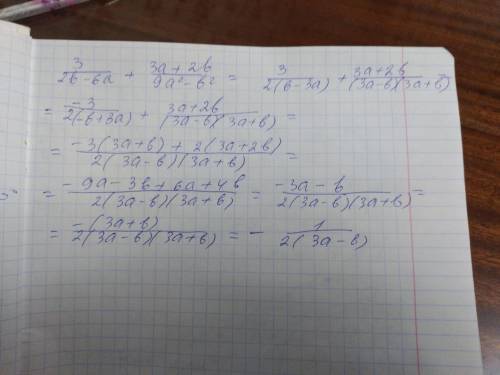 3/(2b-6a) + (3a+2b)/(9a²-b²) = 3/(2(b-3a)) + (3a+2b)/((3a-b)(3a+b)) =
= -3/(2(-b+3a)) + (3a+2b)/((3a-b)(3a+b)) =
= (-3(3a+b) + 2(3a+2b))/(2(3a-b)(3a+b)) =
= (-9a-3b+6a+4b)/(2(3a-b)(3a+b)) = (-3a-b)/(2(3a-b)(3a+b)) =
= -(3a+b)/(2(3a-b)(3a+b)) = - 1/(2(3a-b))